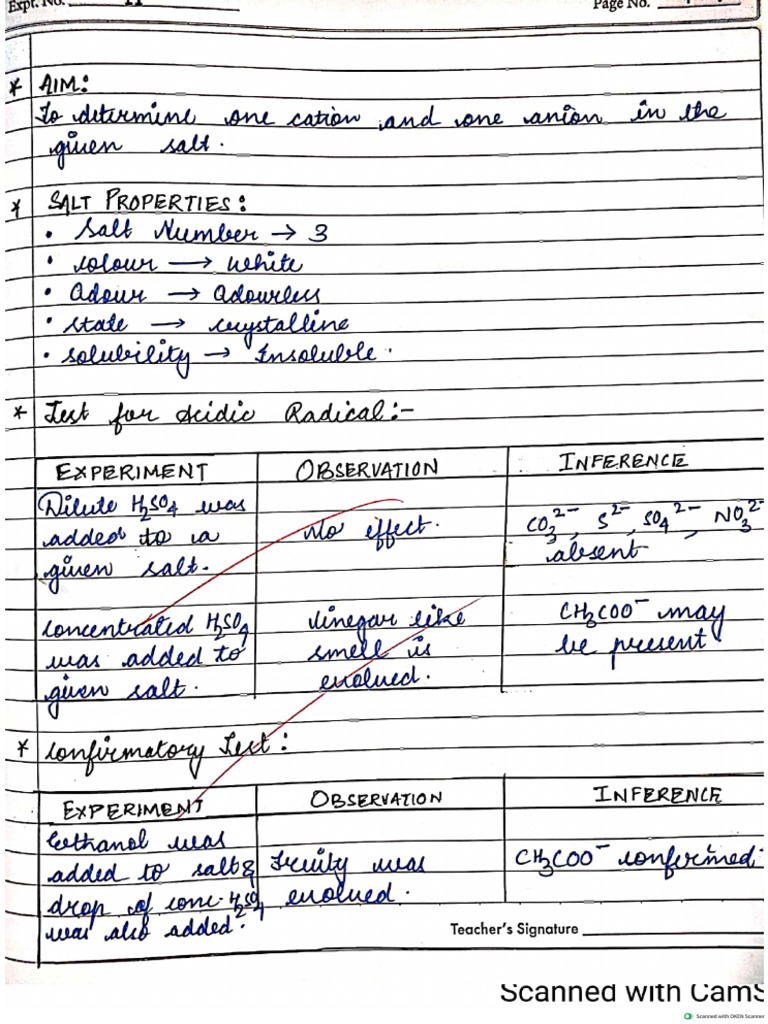 Expt. No. 11
Page No.
* AIM:
To determine one cation and one anion in the
given salt.
* SALT PROPERTIES:
• Salt Number → 3
• colour → White
• Adour → Adourless
• state → crystalline
• solubility → Insoluble.
* Test for Acidic Radical:-
EXPERIMENT OBSERVATION INFERENCE
Dilute H2SO4 was
added to a No effect. CO3^2-, S^2-, SO4^2-, NO3^2-
given salt. absent
concentrated H2SO4 vinegar like CH3COO^- may
was added to smell is be present
given salt. evolved.
* Confirmatory Test:
EXPERIMENT OBSERVATION INFERENCE
Eethanol was
added to salt & Fruity was CH3COO^- confirmed.
drop of conc. H2SO4 evolved.
was also added.
Teacher's Signature
Scanned with CamS
Scanned with OKEN Scanner